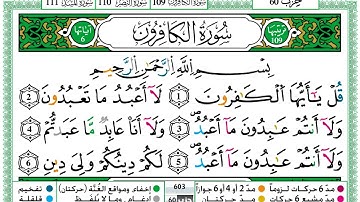 سورة المسد 111 سورة النصر 110 سورة الكافرون 109 حزب 60
آياتها 6 سُورَةُ الكَافِرُونَ ترتيبها 109
بِسْمِ اللَّهِ الرَّحْمَٰنِ الرَّحِيمِ
قُلْ يَٰٓأَيُّهَا ٱلْكَٰفِرُونَ 1 لَآ أَعْبُدُ مَا تَعْبُدُونَ 2
وَلَآ أَنتُمْ عَٰبِدُونَ مَآ أَعْبُدُ 3 وَلَآ أَنَا۠ عَابِدٌ مَّا عَبَدتُّمْ 4
وَلَآ أَنتُمْ عَٰبِدُونَ مَآ أَعْبُدُ 5 لَكُمْ دِينُكُمْ وَلِىَ دِينِ 6
مدّ 6 حركات لزوماً مدّ 2 أو 4 أو 6 جوازاً 603 إخفاء، ومواقع الغُنَّة (حركتان) تفخيم
مدّ مشبع 6 حركات مدّ حركتان 60 إدغام، وما لا يُلفَظ قلقلة